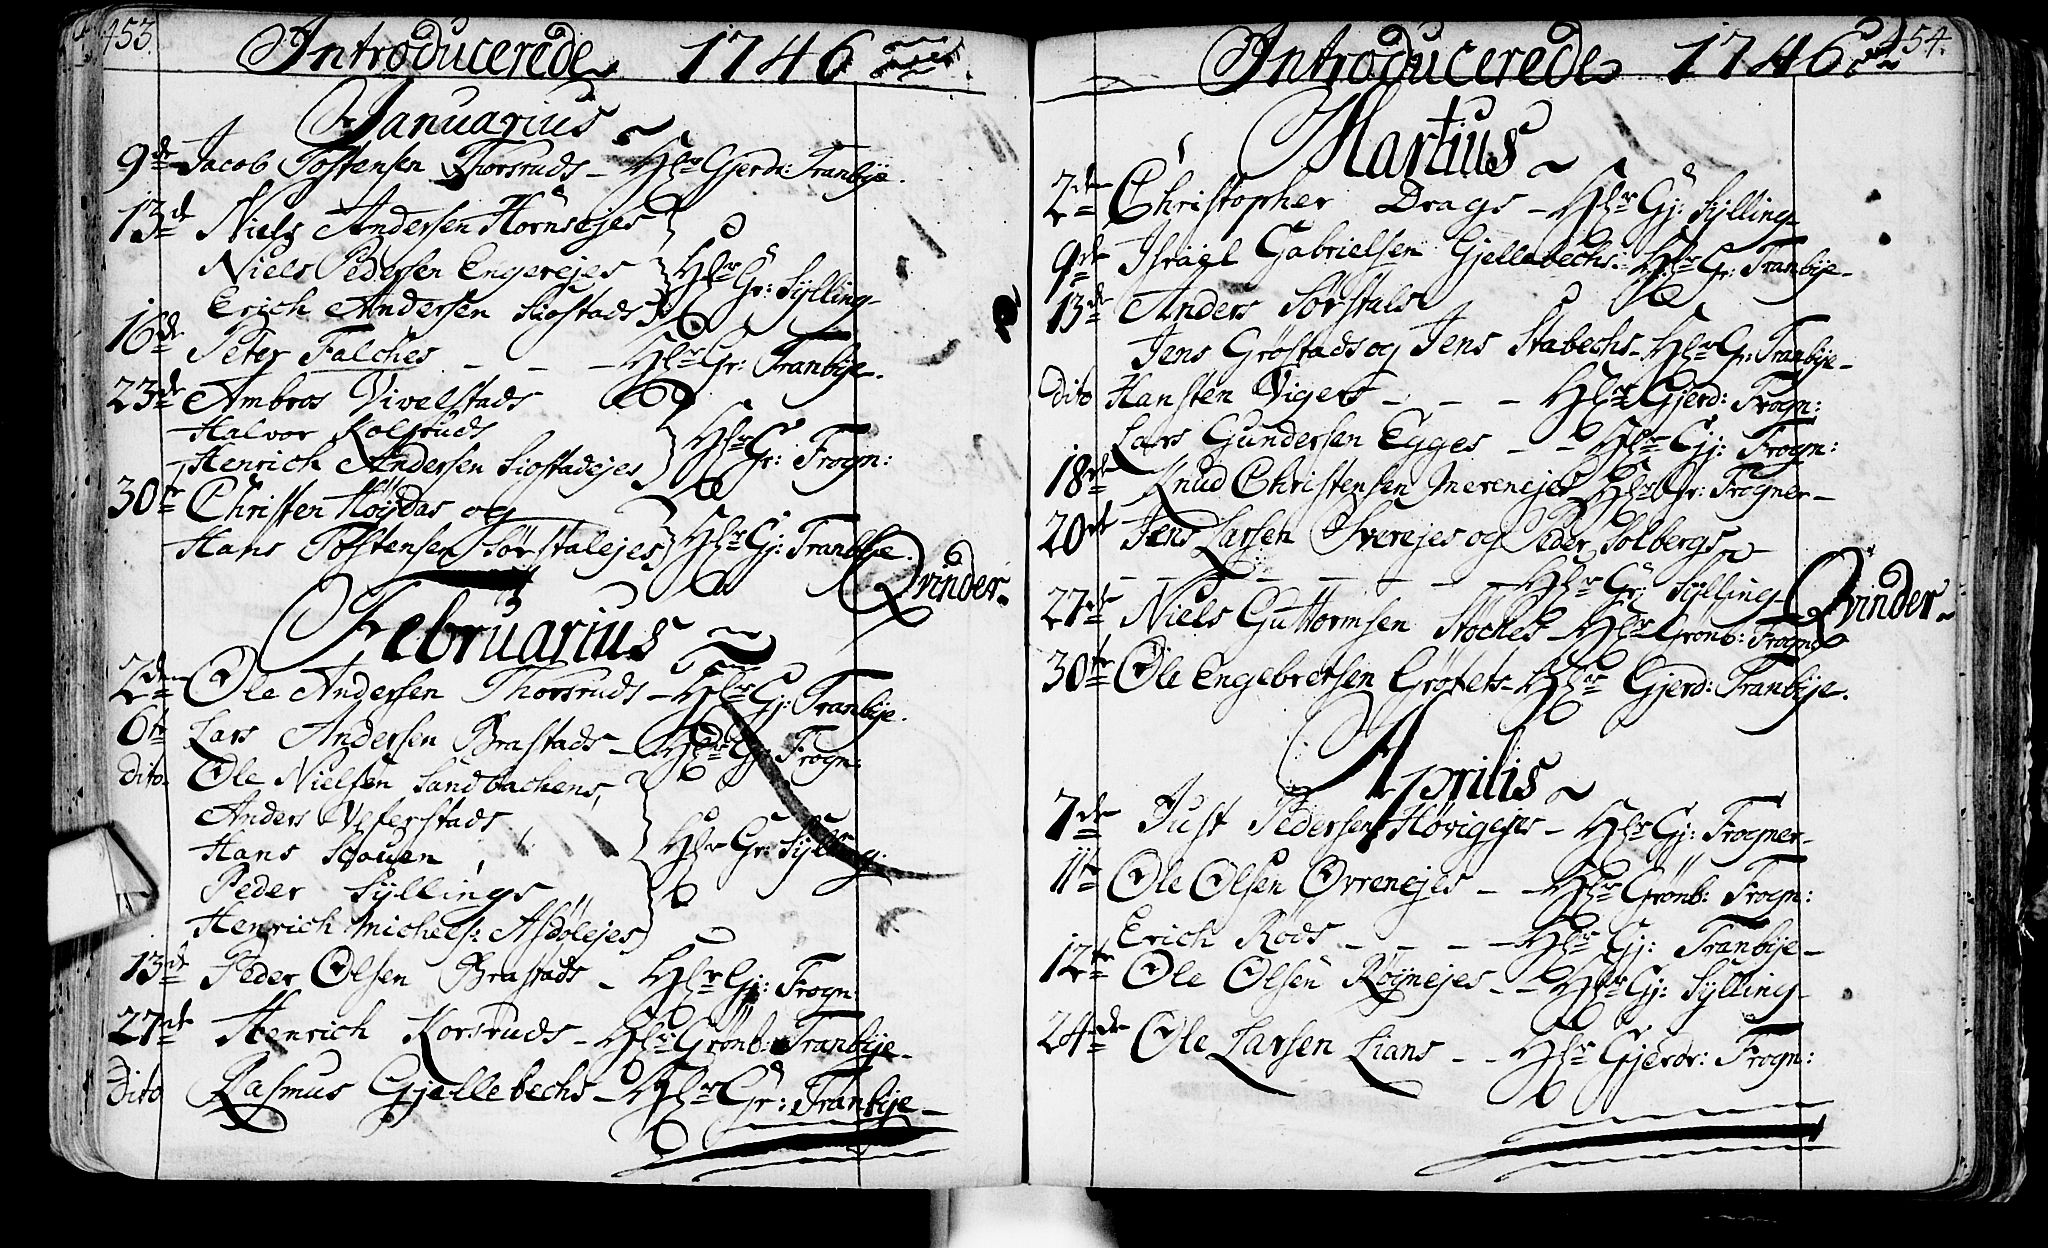 453.
Introducerede 1746
Januarius
9de Jacob Tostensen Thorsruds - Hr Gjerdr: Tranbÿe.
13de Niels Andersen Hornsejes
Niels Pedersen Engerejes Hr Gr: Sÿlling
Erich Andersen Siøstads
16de Peter Falches - - - Hr Gr: Tranbÿe.
23de Ambros Vivelstads
Halvor Kolsruds Hr Gr: Frogn:
Henrich Andersen Siøstadejes
30te Christen Høÿdas og
Hans Tostensen Sørstalejes Hr Gj: Tranbÿe.
Qvinder
Februarius
2den Ole Andersen Thorsruds - Hr Gj: Tranbÿe.
6te Lars Andersen Brastads - Hr Gr: Frogn:
dito. Ole Nielsen Sandbachens,
Anders Ueferstads
Hans Schouen Hr Gr: Sÿlling:
Peder Sÿllings
Henrich Michels: Asdølejes
13de Peder Olsen Brastads - Hr Gj: Frogn:
27de Henrich Korsruds - Hr Grønb: Tranbÿe
dito Rasmus Gjellebechs - Hr Gr: Tranbÿe
454.
Introducerede 1746
Martius
2den Christopher Drags - Hr Gj: Sÿlling
9de Israel Gabrielsen Gjellebechs: Hr Gr: Tranbÿe
13de Anders Sørstals
Jens Grøstads og Jens Stabechs - Hr Gr: Tranbÿe
dito Hansten Vigers - - - Hr Gjerd: Frogn:
Lars Gundersen Egges - - Hr Gj: Frogn:
18de Knud Christensen Merenejes Hr Gr: Frogner
20de Jens Larsen Overejes og Peder Solbergs
- - - - - - Hr Gr: Sÿlling
27de Niels Guttormsen Stoches - Hr Grønb: Frogn
Qvinder
30te Ole Engebretsen Grøfets - Hr Gjerd: Tranbÿe.
Aprilis
7de Just Pedersen Høvigejes - Hr Gj: Frogner
11te Ole Olsen Ovrenejes - - Hr Grønb: Frogn:
Erich Røds - - - - Hr Gj: Tranbÿe
12te Ole Olsen Røgnejes - - Hr Gj: Sÿlling
24de Ole Larsen Lians - - Hr Gjerdr: Frogn: